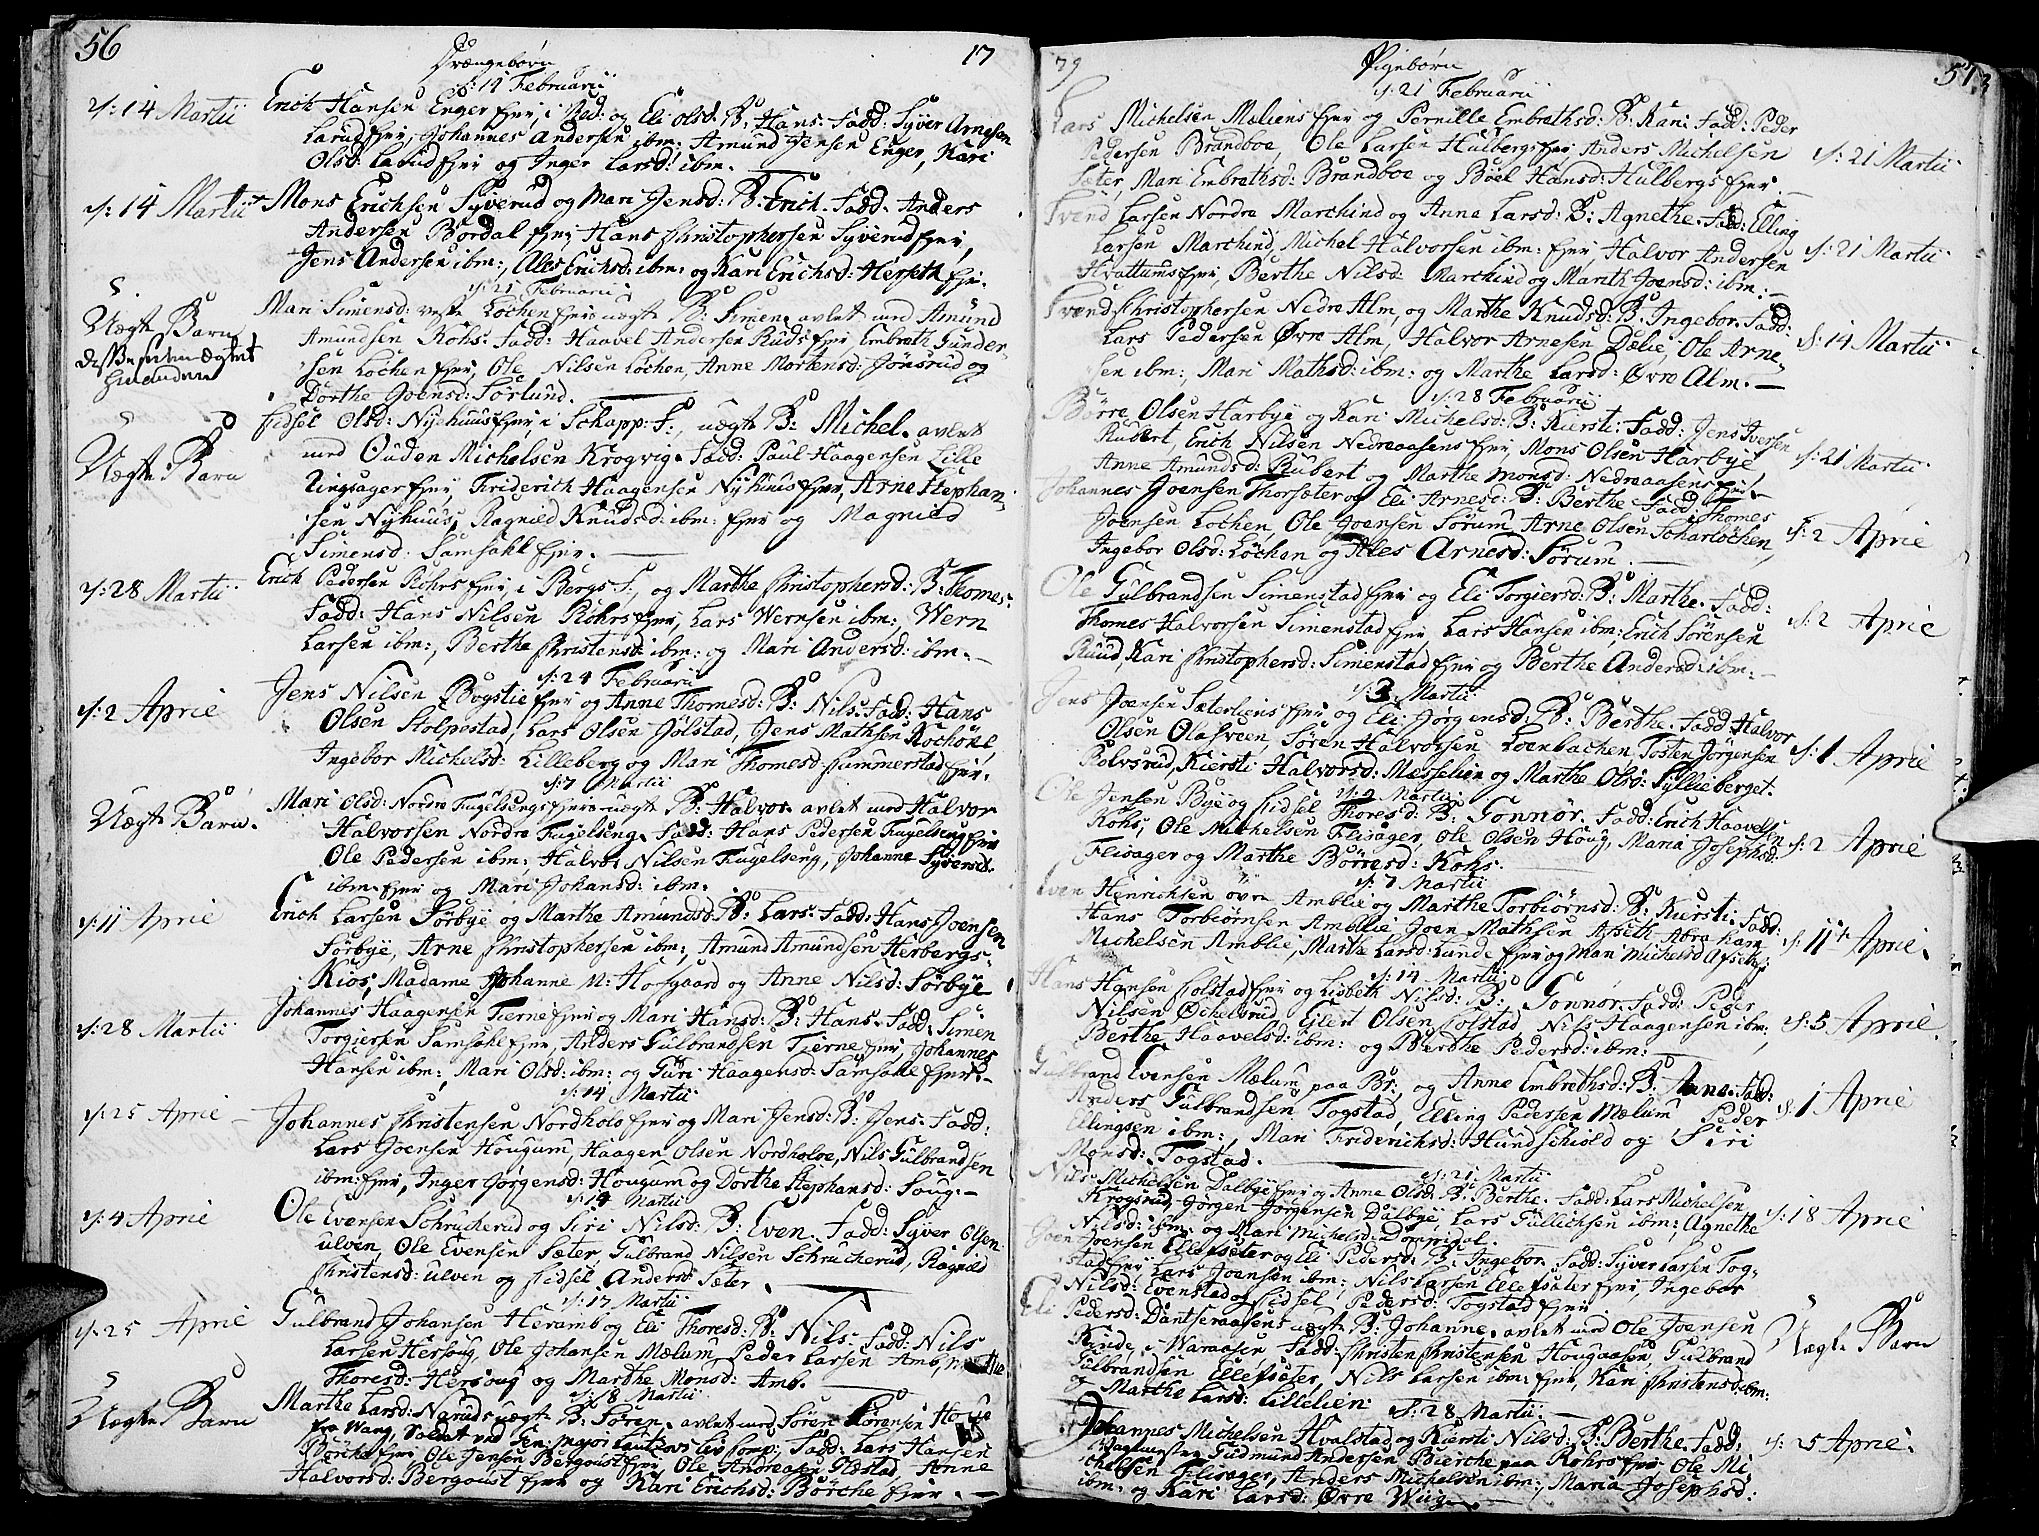 56
Drængebørn
17
d: 14 Februarii
d: 14 Martii
Erich Hansen Enger Ejer, i Bad: og Eli Olsd: B: Hans. Fadd: Syver Arnesen
Larud Ejer, Johannes Andersen ibm: Amund Jensen Enger, Kari
Olsd: Larud Ejer og Inger Larsd: ibm.
d: 14 Martii
Mons Erichsen Syverud og Mari Jensd: B: Erich. Fadd: Anders
Andersen Bordal Ejer, Hans Christophersen Syverud Ejer,
Jens Andersen ibm:, Ales Erichsd: ibm: og Kari Erichsd: Herseth Ejer.
d: 21 Februarii
Uægte Barn
Mari Simensd: Løchen Ejer uægte B: Simen, avlet med Amund
Amundsen Kohs. Fadd: Haavel Andersen Ruds Ejer, Embreth Gunder-
sen Løchen Ejer, Ole Nilsen Løchen, Anne Mortensd: Jønsrud og
Dorthe Joensd: Sørlund.
Uægte Barn
Sidsel Olsd: Nyehuus Ejer, i Schapp: S:, uægte B: Michel. avlet
med Ouden Michelsen Krogvig. Fadd: Paul Haagensen Lille
Ringsager Ejer, Friderich Haagensen Nyhuus Ejer, Arne Stephan-
sen Nyhuus, Ragnild Knudsd: ibm: Ejer og Magnild
Simensd: Samsahl Ejer.
d: 28 Martii
Erich Pedersen Rohrs Ejer, i Bergs S:, og Marthe Christophersd: B: Thomes.
Fadd: Hans Nilsen Rohrs Ejer, Lars Wernsen ibm:, Wern
Larsen ibm:, Berthe Christensd: ibm: og Mari Andersd: ibm.
d: 24 Februarii
d: 2 April
Jens Nilsen Bogstie Ejer og Anne Thomesd: B: Nils. Fadd: Hans
Olsen Stolpestad, Lars Olsen Jølstad, Jens Mathsen Kochøhl,
Ingebor Michelsd: Lilleberg og Mari Thomesd: Summerstad Ejer.
d: 7 Martii
Uægte Barn.
Mari Olsd: Nordre Fugelsengs Ejer uægte B: Halvor avlet med Halvor
Halvorsen Nordre Fugelseng. Fadd: Hans Pedersen Fugelseng Ejer
Ole Pedersen ibm:, Halvor Nilsen Fugelseng, Johanne Syversd:
ibm. Ejer og Mari Johansd: ibm.
d: 11 April
Erich Larsen Sørbye og Marthe Amundsd: B: Lars. Fadd: Hans Joensen
Sørbye, Arne Christophersen ibm:, Amund Amundsen Herbergs-
Kios, Madame Johanne M: Hofgaard og Anne Nilsd: Sørbye
d: 28 Martii
Johannes Haagensen Tierne Ejer og Mari Hansd: B: Hans. Fadd: Simen
Torgiersen Samsahl Ejer, Anders Gulbrandsen Tierne Ejer, Johannes
Hansen ibm:, Mari Olsd: ibm: og Guri Haagensd: Samsahl Ejer.
d: 14 Martii
d: 25 April
Johannes Christensen Nordhols Ejer og Mari Jensd: B: Jens. Fadd:
Lars Joensen Hougum, Haagen Olsen Nordholve, Nils Gulbrandsen
ibm: Ejer, Inger Jørgensd: Hougum og Dorthe Stephansd: Soug.
d: 14 Martii
d: 4 April
Ole Evensen Schrucherud og Siri Nilsd: B: Even. Fadd: Syver Olsen
Ulven, Ole Evensen Sæter, Gulbrand Nilsen Schrucherud, Ragnild
Christensd: Ulven og Sidsel Andersd: Sæter.
d: 17 Martii
d: 25 April
Gulbrand Johansen Heramb og Eli Thoresd: B: Nils. Fadd: Nils
Larsen Hersoug, Ole Johansen Mælum, Peder Larsen Amb,
Thoresd: Hersoug og Marthe Monsd: Amb.
d: 18 Martii
Uægte Barn
Marthe Larsd: Naruds uægte B: Søren. avlet med Søren Sørensen Hove
fra Wang, Soldat ved Gen: Major Liv Comp:, Fadd: Lars Hansen
Børche Ejer, Ole Jensen Bergoust Ejer, Ole Andreasen Glostad, Anne
Halvorsd: Bergoust Ejer og Kari Erichsd: Børche Ejer.
79
Pigebørn
57
d: 21 Februarii
Lars Michelsen Mæliens Ejer og Pernille Embrethsd: B: Kari. Fadd: Peder
Pedersen Brandboe, Ole Larsen Hulbergs Ejer, Anders Michelsen
Sæter, Mari Embrethsd: Brandboe og Boel Hansd: Hulbergs Ejer.
d: 21 Martii
Svend Larsen Nordre Marchind og Anne Larsd: B: Agnethe. Fadd: Elling
Larsen Marchind, Michel Halvorsen ibm: Ejer, Halvor Andersen
Hvattums Ejer, Berthe Nilsd: Marchind og Marith Joensd: ibm:
d: 21 Martii
Svend Christophersen Nedre Alm, og Marthe Knudsd: B: Ingebor. Fadd:
Lars Pedersen Øvre Alm, Halvor Arnesen Dælie, Ole Arne-
sen ibm:, Mari Mathsd: ibm: og Marthe Larsd: Øvre Alm.
d: 14 Martii
d: 28 Februarii
Børre Olsen Harbye og Kari Michelsd: B: Kiersti. Fadd: Jens Iversen
Rubert, Erich Nilsen Nedreaasens Ejer, Mons Olsen Harbye
Anne Amundsd: Rubert og Marthe Monsd: Nedreaasens Ejer.
d: 21 Martii
Johannes Joensen Thorsæter og Eli Arnesd: B: Berthe. Fadd: Thomes
Joensen Løchen, Ole Joensen Sørum, Arne Olsen Scharløchen,
Ingebor Olsd: Løchen og Ales Arnesd: Sørum.
d: 2 April
Ole Gulbrandsen Simenstad Ejer og Eli Torgiersd: B: Marthe. Fadd:
Thomes Halvorsen Simenstad Ejer, Lars Hansen ibm: Erich Sørensen
Ruud, Kari Christophersd: Simenstad Ejer og Berthe Andersd: ibm.
d: 2 April
d: 3 Martii
Jens Joensen Sæterliens Ejer og Eli Jørgensd: B: Berthe. Fadd: Halvor
Olsen Olasveen, Søren Halvorsen Loenbachen, Tosten Jørgensen
Rolvsrud, Kiersti Halvorsd: Messelien og Marthe Olsd: Syllieberget.
d: 1 April
Ole Jensen Bye og Sidsel Thoresd: B: Gonnor. Fadd: Erich Haavelsen
Kohs, Ole Michelsen Flisager, Ole Olsen Houg, Maria Josephsd:
Flisager og Marthe Børresd: Kohs.
d: 2 April
d: 7 Martii
Even Henrichsen øvre Amblie og Marthe Torbiørnsd: B: Kiersti. Fadd:
Hans Torbiørnsen Amblie, Joen Mathsen Afseth, Abraham
Michelsen Amblie, Marthe Larsd: Lunde Ejer og Mari Michelsd: Afseth
d: 11te April.
d: 14 Martii
Hans Hansen Colstad Ejer og Lisbeth Nilsd: B: Gonnor. Fadd: Peder
Nilsen Øchelsrud, Ejlert Olsen Colstad, Nils Haagensen ibm:,
Berthe Haavelsd: ibm: og Berthe Pedersd: ibm:
d: 5 April.
Gulbrand Evensen Mælum paa Br:, og Anne Embrethsd: B: Anne. Fadd:
Anders Gulbrandsen Togstad, Elling Pedersen Mælum Peder
Ellingsen ibm:, Mari Friderichsd: Hundschiold og Siri
Monsd: Togstad.
d: 1 April
d: 21 Martii
Nils Michelsen Dalbye Ejer og Anne Olsd: B: Berthe. Fadd: Lars Michelsen
Krogsrud, Jørgen Jørgensen Dalbye, Lars Gullichsen ibm:, Agnethe
Nilsd: ibm: og Mari Michelsd: Dompidal.
d: 18 April
Joen Joensen Ellefsæter og Eli Pedersd: B: Ingebor. Fadd: Syver Larsen Tog-
stad Ejer, Lars Joensen ibm:, Nils Larsen Ellefsæter Ejer, Ingebor
Nilsd: Evenstad og Sidsel Pedersd: Togstad Ejer.
Eli Pedersd: Dantseraasens uægte B: Johanne. avlet med Ole Joensen
Rinde, i Waraasen. Fadd: Christen Christensen Hougaasen, Gulbrand
Gulbrandsen Ellefsæter, Nils Larsen ibm: Ejer, Kari Christensd: ibm:
og Marthe Larsd: Lillelien.
Uægte Barn
d: 28 Martii
Johannes Michelsen Hvalstad og Kiersti Nilsd: B: Berthe. Fadd:
Gudmund Andersen Bierche paa Rohrs Ejer, Ole Mi-
chelsen Flisager, Anders Michelsen ibm:, Maria Josephsd:
ibm. og Kari Larsd: Øvre Wiig
d: 25 April.